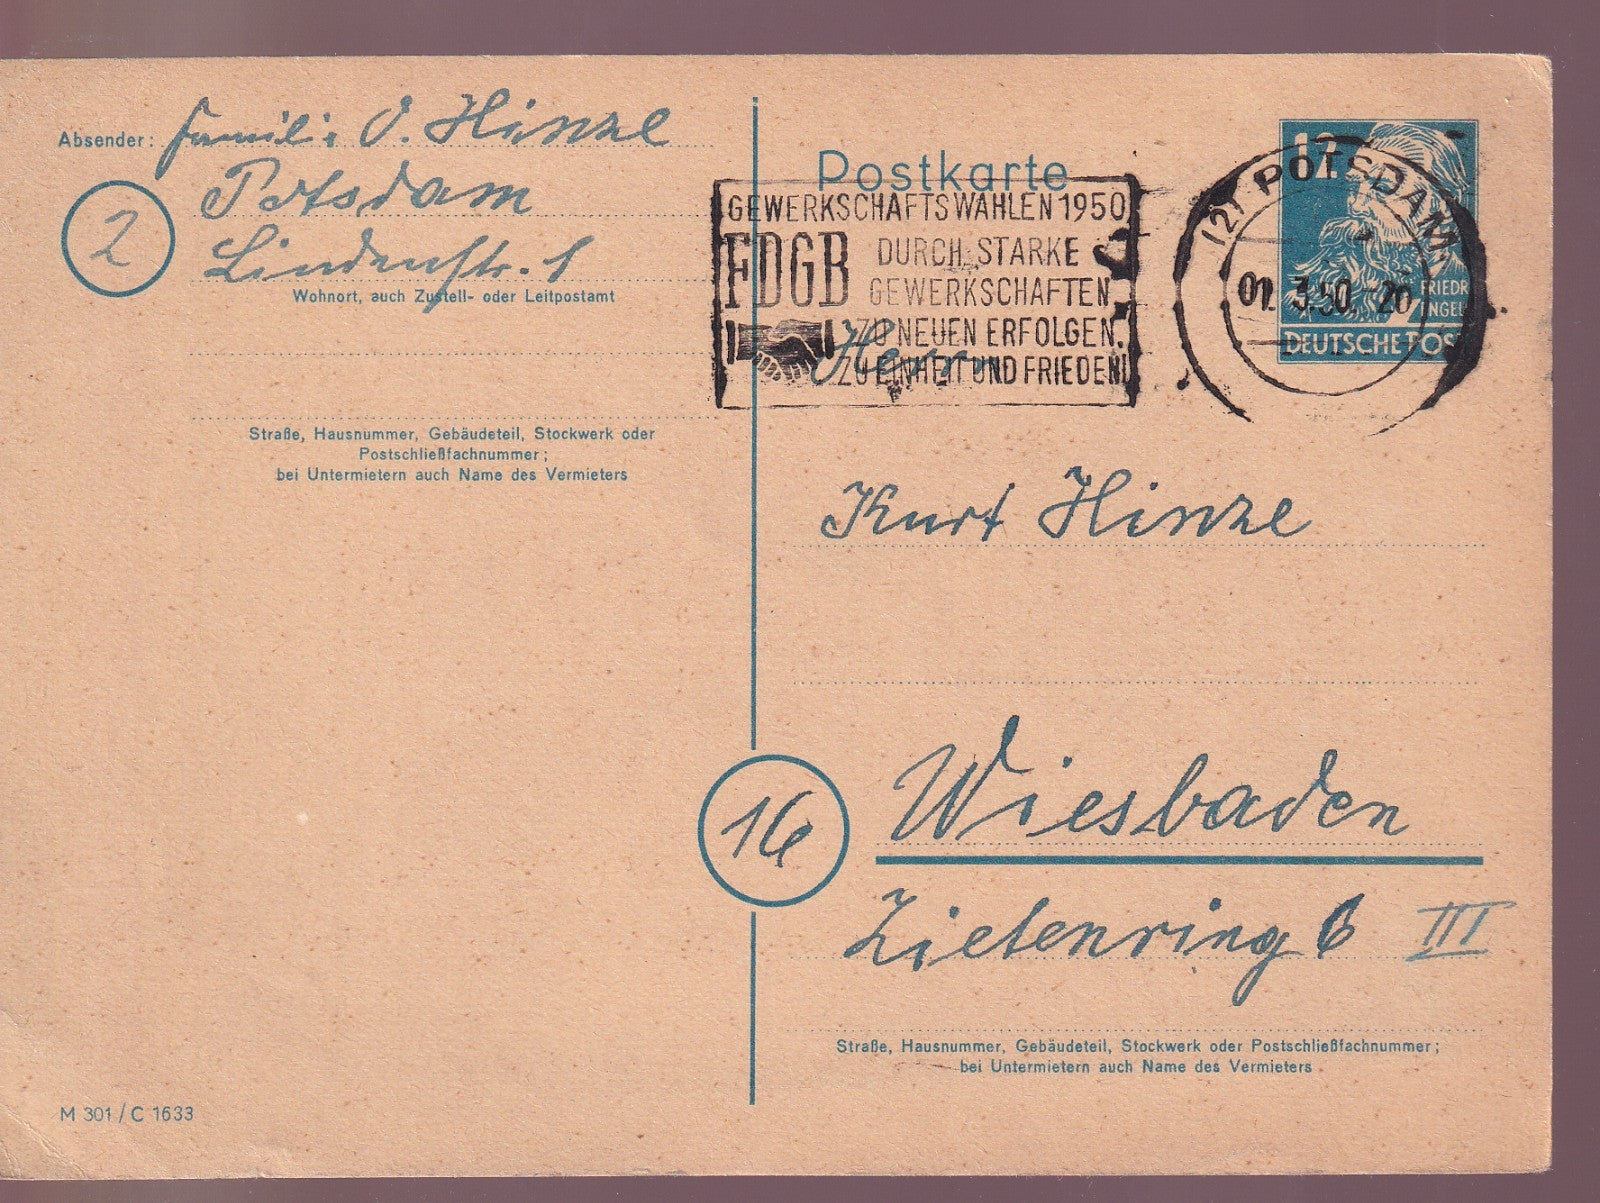 Absender: Familie O. Hinze
Potsdam
2
Lindenstr. 1
Wohnort, auch Zustell- oder Leitpostamt
Straße, Hausnummer, Gebäudeteil, Stockwerk oder
Postschließfachnummer;
bei Untermietern auch Name des Vermieters
M 301 / C 1633
Postkarte
GEWERKSCHAFTSWAHLEN 1950
FDGB
DURCH STARKE
GEWERKSCHAFTEN
ZU NEUEN ERFOLGEN.
ZU EINHEIT UND FRIEDEN!
(2) POTSDAM 1
3.50.-20
12
FRIEDR
ENGEL
DEUTSCHE POST
Herrn
Kurt Hinze
16
Wiesbaden
Zietenring 6 III
Straße, Hausnummer, Gebäudeteil, Stockwerk oder Postschließfachnummer;
bei Untermietern auch Name des Vermieters